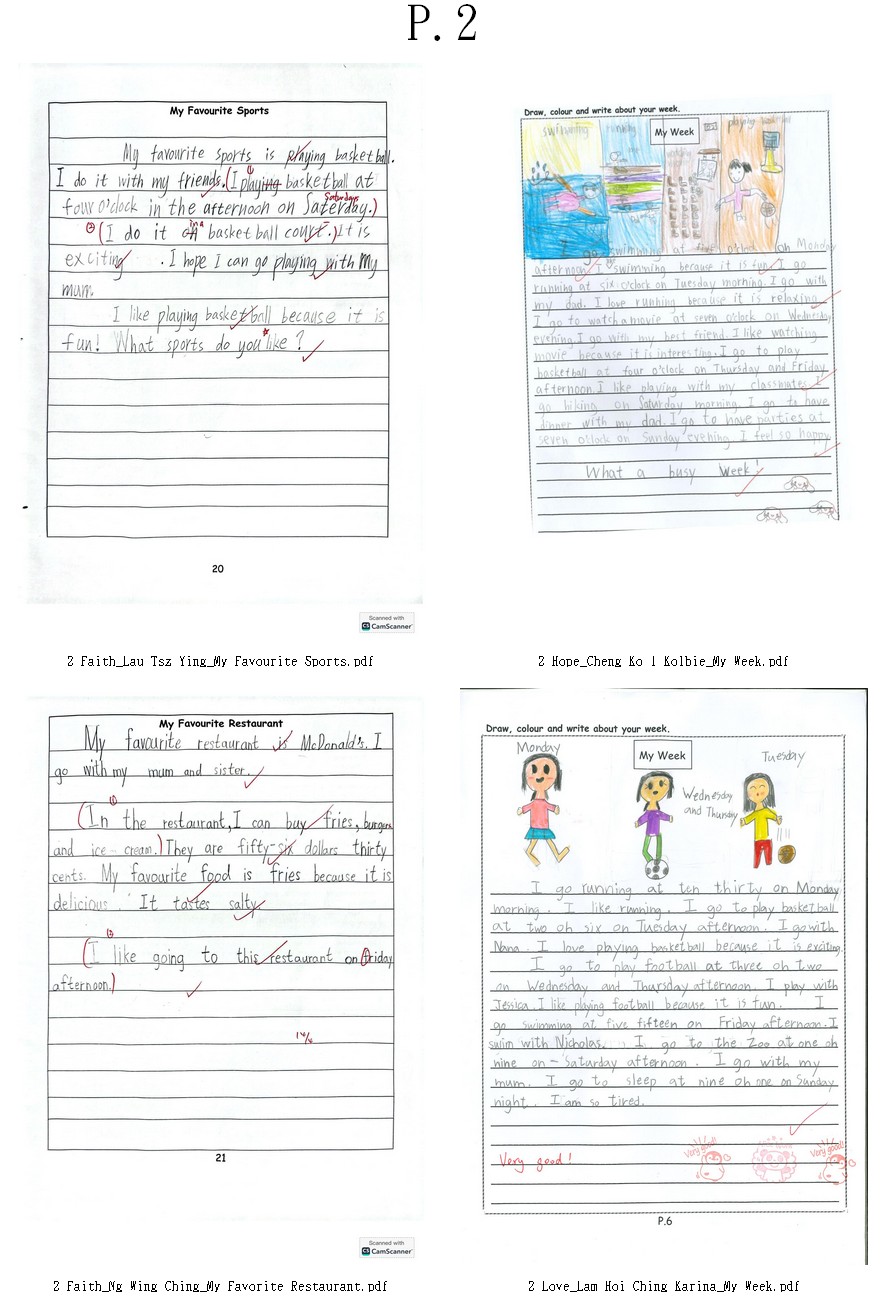 P.2
My Favourite Sports
My favourite sports is playing basketball.
I do it with my friends. (I playing basketball at
four o'clock in the afternoon on Saterday.)
Saturdays
(I do it on basketball court.) It is
in a
exciting. I hope I can go playing with my
mum.
I like playing basketball because it is
fun! What sports do you like?
20
Scanned with
CS CamScanner
2 Faith_Lau Tsz Ying_My Favourite Sports.pdf
Draw, colour and write about your week.
My Week
swimming
running
playing
I go swimming at five o'clock on Monday
afternoon. I swimming because it is fun. I go
running at six o'clock on Tuesday morning. I go with
my dad. I love running because it is relaxing.
I go to watch a movie at seven o'clock on Wednesday
evening. I go with my best friend. I like watching
movie because it is interesting. I go to play
basketball at four o'clock on Thursday and Friday
afternoon. I like playing with my classmates. I
go hiking on Saturday morning. I go to have
dinner with my dad. I go to have parties at
seven o'clock on Sunday evening. I feel so happy.
What a busy Week!
2 Hope_Cheng Ko I Kolbie_My Week.pdf
My Favourite Restaurant
My favourite restaurant is McDonald's. I
go with my mum and sister.
(In the restaurant, I can buy fries, burgers
and ice-cream.) They are fifty-six dollars thirty
cents. My favourite food is fries because it is
delicious. It tastes salty.
(I like going to this restaurant on Friday
afternoon.)
21
Scanned with
CS CamScanner
2 Faith_Ng Wing Ching_My Favorite Restaurant.pdf
Draw, colour and write about your week.
Monday
My Week
Tuesday
Wednesday
and Thursday
I go running at ten thirty on Monday
morning. I like running. I go to play basketball
at two oh six on Tuesday afternoon. I go with
Nana. I love playing basketball because it is exciting.
I go to play football at three oh two
on Wednesday and Thursday afternoon. I play with
Jessica. I like playing football because it is fun. I
go swimming at five fifteen on Friday afternoon. I
swim with Nicholas. I go to the Zoo at one oh
nine on Saturday afternoon. I go with my
mum. I go to sleep at nine oh one on Sunday
night. I am so tired.
Very good!
Very good!
Very good!
P.6
2 Love_Lam Hoi Ching Karina_My Week.pdf